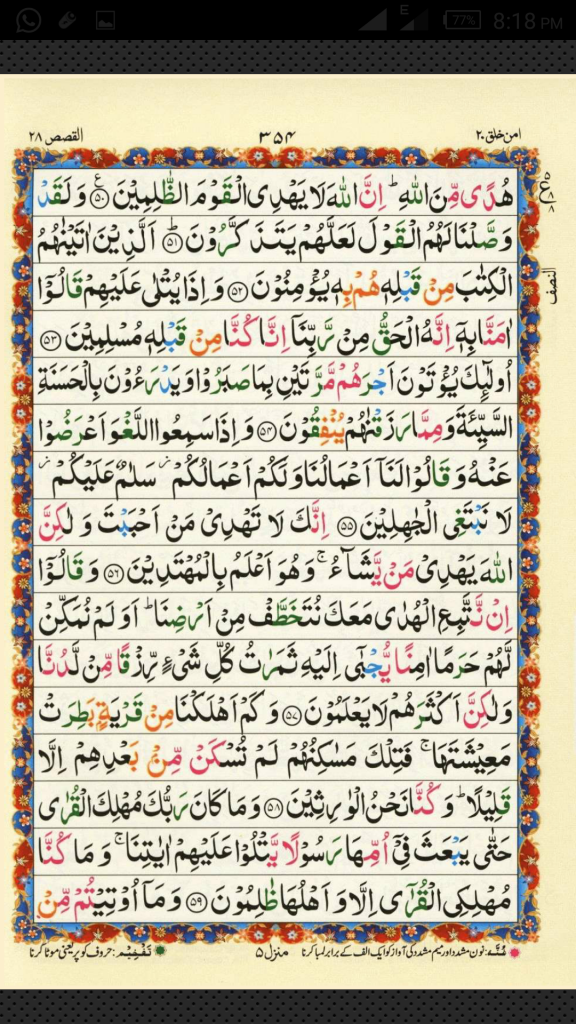 E 77% 8:18 PM
امن خلق ٢٠ ٣٥٤ القصص ٢٨
هُدًى مِّنَ اللّٰهِ ؕ اِنَّ اللّٰهَ لَا يَهْدِى الْقَوْمَ الظّٰلِمِيْنَ ﴿۵۰﴾ وَ لَقَدْ
وَصَّلْنَا لَهُمُ الْقَوْلَ لَعَلَّهُمْ يَتَذَكَّرُوْنَ ؕ﴿۵۱﴾ اَلَّذِيْنَ اٰتَيْنٰهُمُ
الْكِتٰبَ مِنْ قَبْلِهٖ هُمْ بِهٖ يُؤْمِنُوْنَ ﴿۵۲﴾ وَ اِذَا يُتْلٰى عَلَيْهِمْ قَالُوْۤا
اٰمَنَّا بِهٖۤ اِنَّهُ الْحَقُّ مِنْ رَّبِّنَاۤ اِنَّا كُنَّا مِنْ قَبْلِهٖ مُسْلِمِيْنَ ﴿۵۳﴾
اُولٰٓئِكَ يُؤْتَوْنَ اَجْرَهُمْ مَّرَّتَيْنِ بِمَا صَبَرُوْا وَ يَدْرَءُوْنَ بِالْحَسَنَةِ
السَّيِّئَةَ وَ مِمَّا رَزَقْنٰهُمْ يُنْفِقُوْنَ ﴿۵۴﴾ وَ اِذَا سَمِعُوا اللَّغْوَ اَعْرَضُوْا
عَنْهُ وَ قَالُوْا لَنَاۤ اَعْمَالُنَا وَ لَكُمْ اَعْمَالُكُمْ ؗ سَلٰمٌ عَلَيْكُمْ ؗ
لَا نَبْتَغِى الْجٰهِلِيْنَ ﴿۵۵﴾ اِنَّكَ لَا تَهْدِىْ مَنْ اَحْبَبْتَ وَ لٰكِنَّ
اللّٰهَ يَهْدِىْ مَنْ يَّشَآءُ ۚ وَ هُوَ اَعْلَمُ بِالْمُهْتَدِيْنَ ﴿۵۶﴾ وَ قَالُوْۤا
اِنْ نَّتَّبِعِ الْهُدٰى مَعَكَ نُتَخَطَّفْ مِنْ اَرْضِنَا ؕ اَوَ لَمْ نُمَكِّنْ
لَّهُمْ حَرَمًا اٰمِنًا يُّجْبٰۤى اِلَيْهِ ثَمَرٰتُ كُلِّ شَىْءٍ رِّزْقًا مِّنْ لَّدُنَّا
وَ لٰكِنَّ اَكْثَرَهُمْ لَا يَعْلَمُوْنَ ﴿۵۷﴾ وَ كَمْ اَهْلَكْنَا مِنْ قَرْيَةٍۭ بَطِرَتْ
مَعِيْشَتَهَا ۚ فَتِلْكَ مَسٰكِنُهُمْ لَمْ تُسْكَنْ مِّنْۢ بَعْدِهِمْ اِلَّا
قَلِيْلًا ؕ وَ كُنَّا نَحْنُ الْوٰرِثِيْنَ ﴿۵۸﴾ وَ مَا كَانَ رَبُّكَ مُهْلِكَ الْقُرٰى
حَتّٰى يَبْعَثَ فِىْۤ اُمِّهَا رَسُوْلًا يَّتْلُوْا عَلَيْهِمْ اٰيٰتِنَا ۚ وَ مَا كُنَّا
مُهْلِكِى الْقُرٰٓى اِلَّا وَ اَهْلُهَا ظٰلِمُوْنَ ﴿۵۹﴾ وَ مَاۤ اُوْتِيْتُمْ مِّنْ
النصف
غُنّه: نون مشدد اور میم مشدد کی آواز کو ایک الف کے برابر لمبا کرنا منزل ۵ تَفْخِیْم: حروف کو پُر یعنی موٹا کرنا